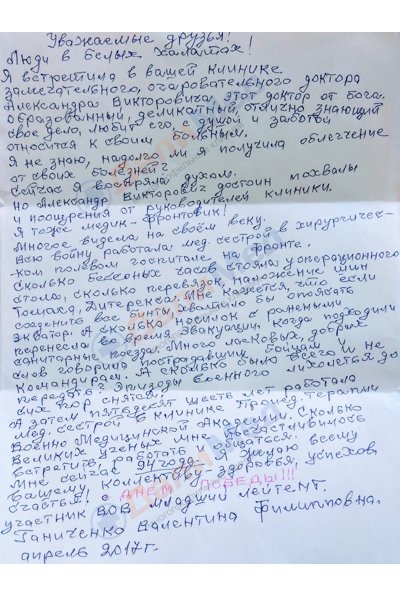 Уважаемые друзья!
Люди в белых халатах!
Я встретила в вашей клинике
замечательного, очаровательного доктора
Александра Викторовича, этот доктор от Бога.
Образованный, деликатный, отлично знающий
свое дело, любит его, с душой и заботой
относится к своим больным.
Я не знаю, надолго ли я получила облегчение
от своих болезней?
Сейчас я воспряла духом.
Но Александр Викторович достоин похвалы
и поощрения от руководителей клиники.
Я тоже медик-фронтовик!
Многое видела на своём веку.
Всю войну работала мед. сестрой в хирургичес-
ком полевом госпитале на фронте.
Сколько бессонных часов стояла у операционного
стола, сколько перевязок, наложение шин
Томаса, Дитерекса. Мне кажется, что если
соединить все бинты, хватило бы опоясать
экватор. А сколько носилок с ранеными
перенесла во время эвакуации. Когда подходили
санитарные поезда. Много ласковых, добрых
слов говорила пострадавшим бойцам и
командирам. А сколько было всего и не
передать. Эпизоды военного лихолетья до
сих пор снятся.
А затем пятьдесят шесть лет работала
мед. сестрой в клинике Пропед. терапии
Военно Медицинской Академии. Сколько
великих учёных мне посчастливилось
встретить, работать и общаться.
Мне сейчас 94 года. Я желаю всему
вашему коллективу здоровья, успехов,
счастья! с ДНЕМ ПОБЕДЫ!!!
участник ВОВ младший лейтент.
Ганиченко Валентина Филипповна.
апрель 2017г.